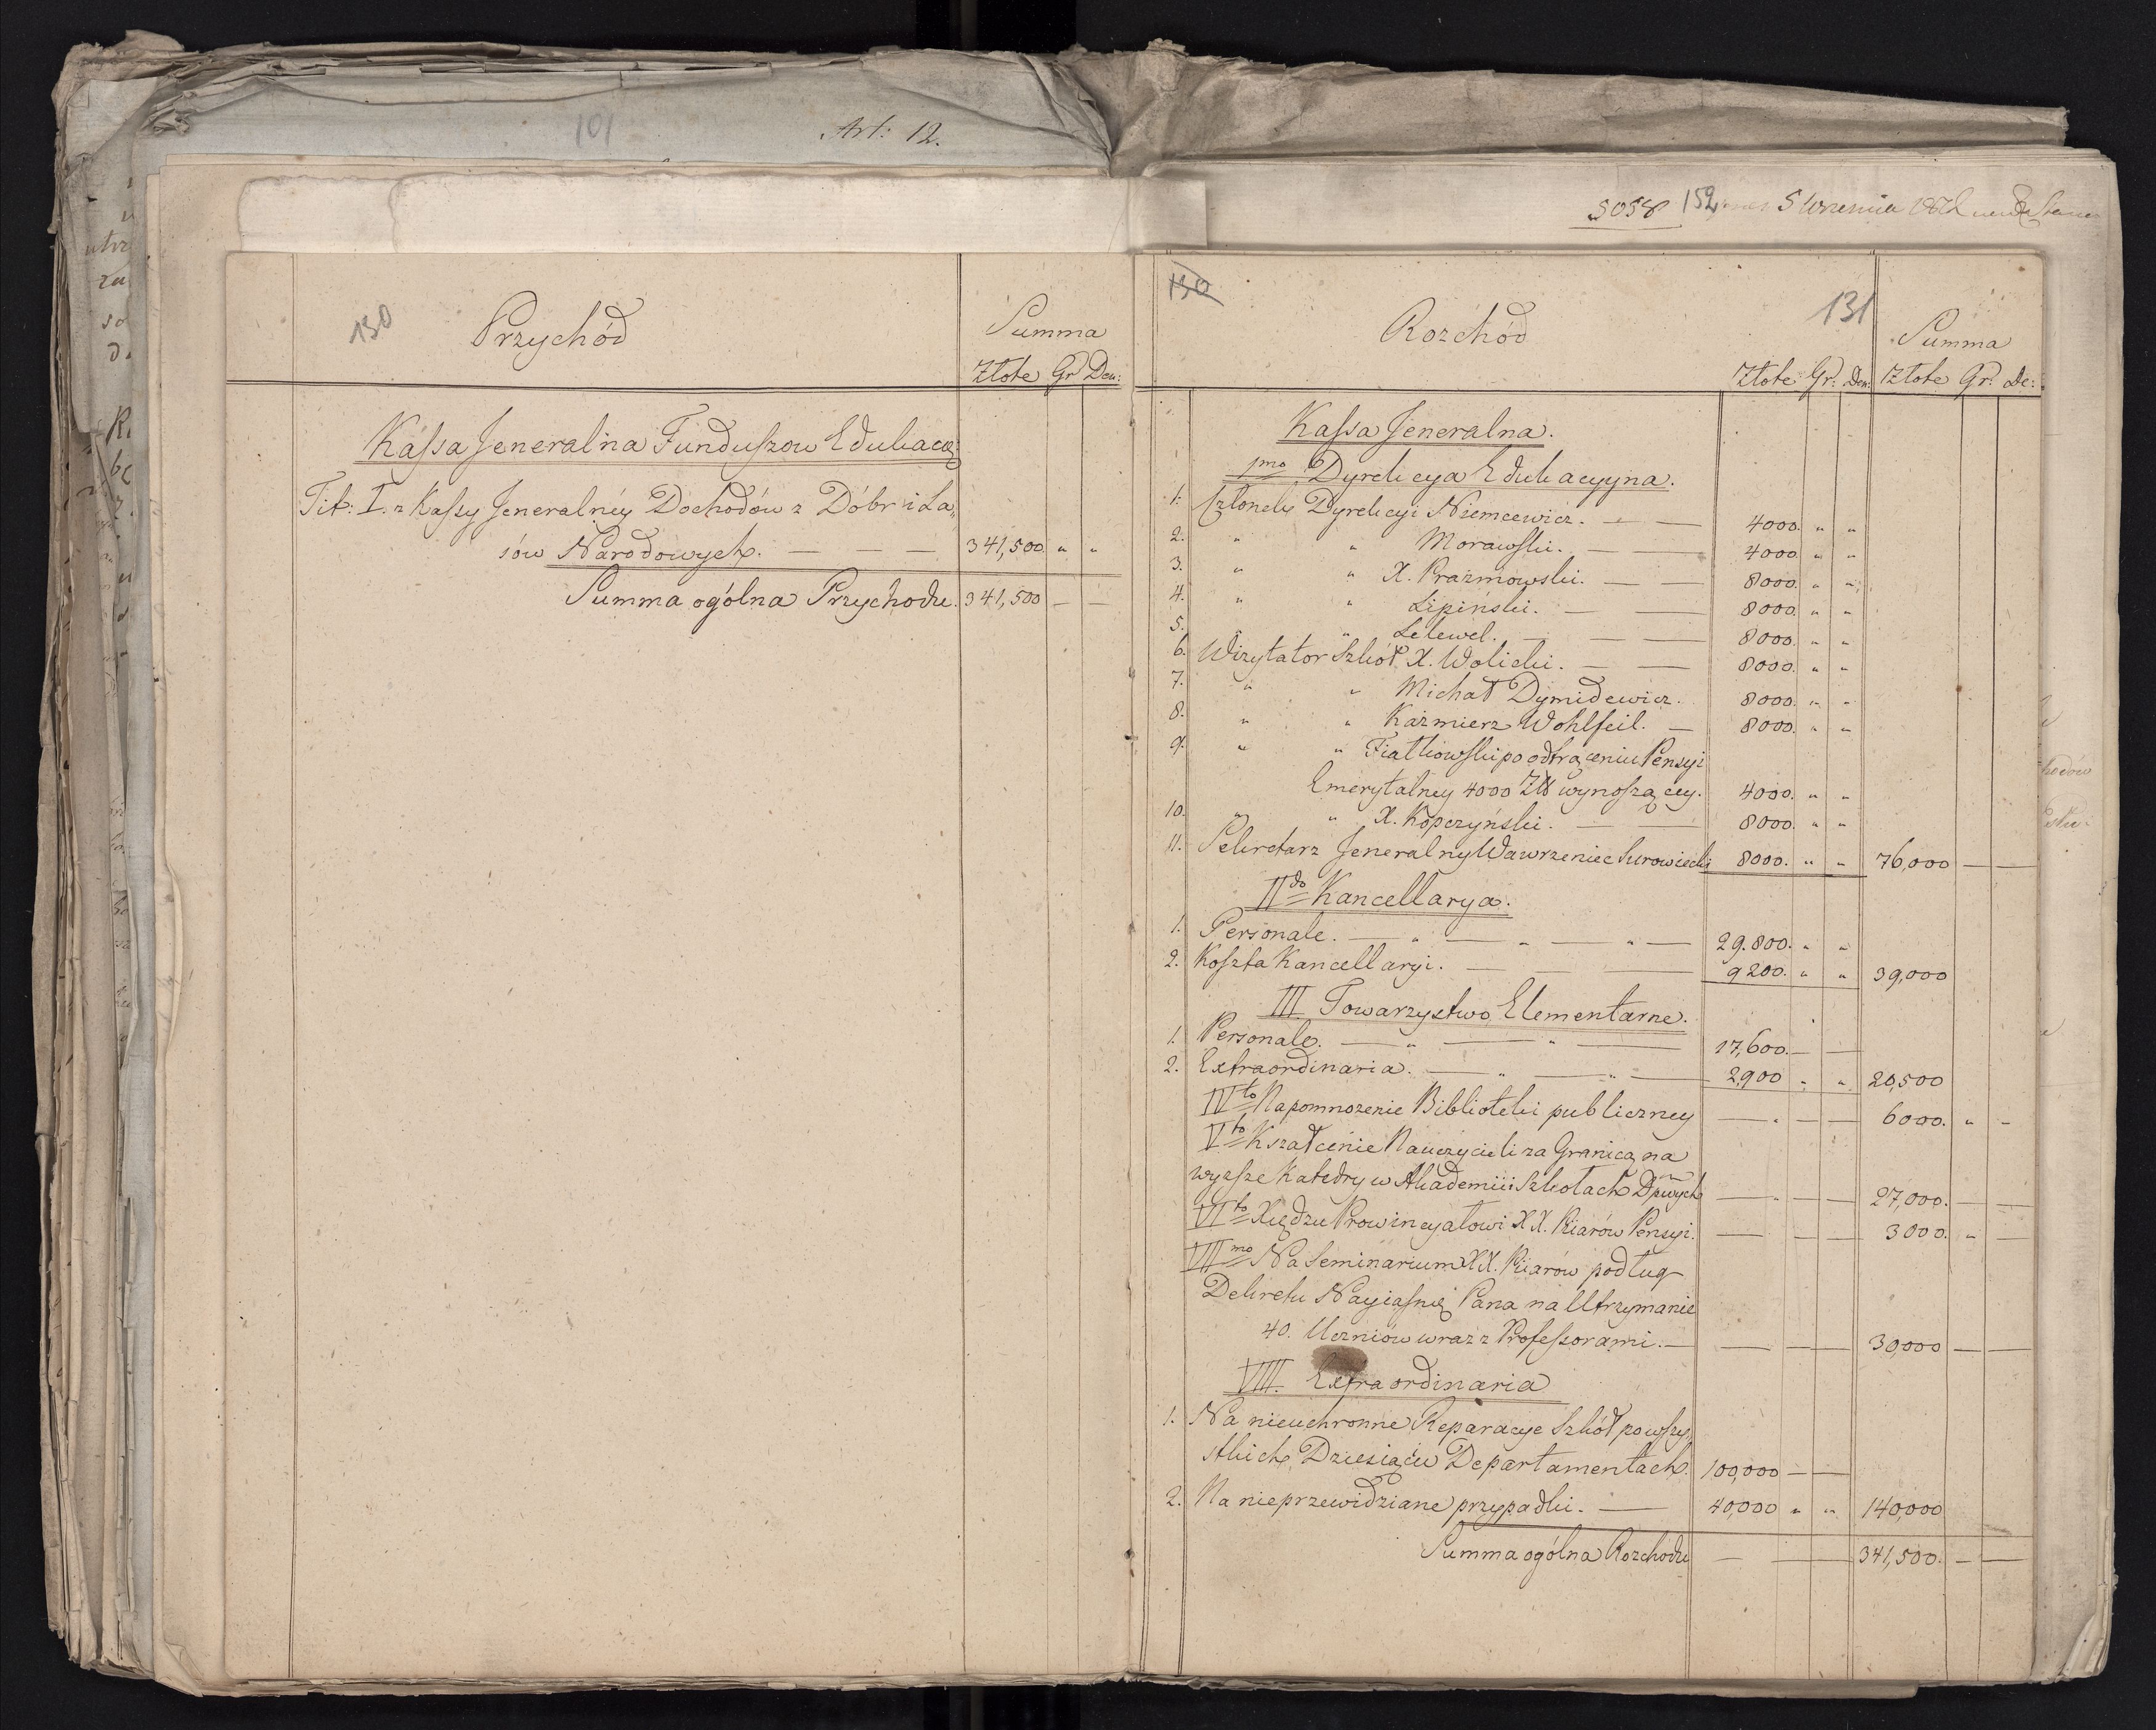 101
Art: 12.
5058
152
5 Września
130
Przychód
Summa
Złote Gr Den:
Kassa Jeneralna Funduszow Edukacÿ:
Tit: I. z Kassy Jeneralnéy Dochodów z Dóbr i La„
sów Narodowych. — — — 341,500. " "
Summa ogólna Przychodu. 341,500 — —
130
131
Rozchód
Summa
Złote Gr: Den: Złote Gr: De:
Kassa Jeneralna.
1mo Dyrekcya Edukacyyna.
1. Członek Dyrekcyi Niemcewicz. — — 4000. " "
2. " " Morawski. — — 4000. " "
3. " " X. Prażmowski. — — 8000. " "
4. " " Lipiński. — — 8000. " "
5. " " Lelewel. — — — 8000. " "
6. Wizytator Szkół X. Wolicki. — — 8000. " "
7. " " Michał Dymidewicz. 8000. " "
8. " " Kaźmierz Wohlfeil. — 8000. " "
9. " " Fiałkowski po odtrąceniu Pensyi
Emerytalney 4000 Zł wynoszącey. 4000. " "
10. " " X. Kopczyński. — — 8000. " "
11. Sekretarz Jeneralny Wawrzeniec Surowiecki 8000. " " 76,000 — —
IIdo Kancellarya.
1. Personale. — " — " — " — 29.800. " "
2. Koszta Kancellaryi. — — — 9200. " " 39,000
III. Towarzystwo Elementarne.
1. Personale. — " — " — 17,600. — —
2. Extraordinaria. — " — " — 2,900 " " 20,500
IVto Na pomnożenie Biblioteki publiczney — " — — 6000. " "
Vto Kształcenie Nauczycieli za Granicą na
wyższe Katedry w Akademii i Szkołach Dpwych — " — — 27,000. — —
VIto Xiędzu Prowincyałowi XX. Piiarów Pensyi. — — — 3000. " —
VIImo Na Seminarium XX. Piiarów podług
Dekretu Nayiaśnię. Pana na Utrzymanie
40. Uczniów wraz z Professorami. — — — — 30,000 — —
VIII. Extraordinaria
1. Na nieuchronne Reparacye Szkół po wszy„
stkich Dziesiąciu Departamentach. 100,000 — —
2. Na nieprzewidziane przypadki. — 40,000 " " 140,000
Summa ogólna Rozchodu — — — 341,500. — —